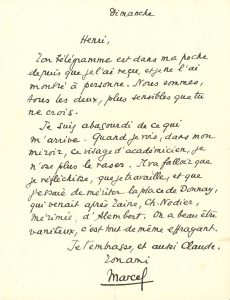 Dimanche
Henri,
Ton télégramme est dans ma poche
depuis que je l'ai reçu, et je ne l'ai
montré à personne. Nous sommes,
tous les deux, plus sensibles que tu
ne crois.
Je suis abasourdi de ce qui
m'arrive. Quand je vois, dans mon
miroir, ce visage d'académicien, je
n'ose plus le raser. Il va falloir que
je réfléchisse, que je travaille, et que
j'essaie de mériter la place de Donnay,
qui venait après Taine, Ch. Nodier,
Mérimée, d'Alembert. On a beau être
vaniteux, c'est tout de même effrayant.
Je t'embrasse, et aussi Claude.
Ton ami
Marcel